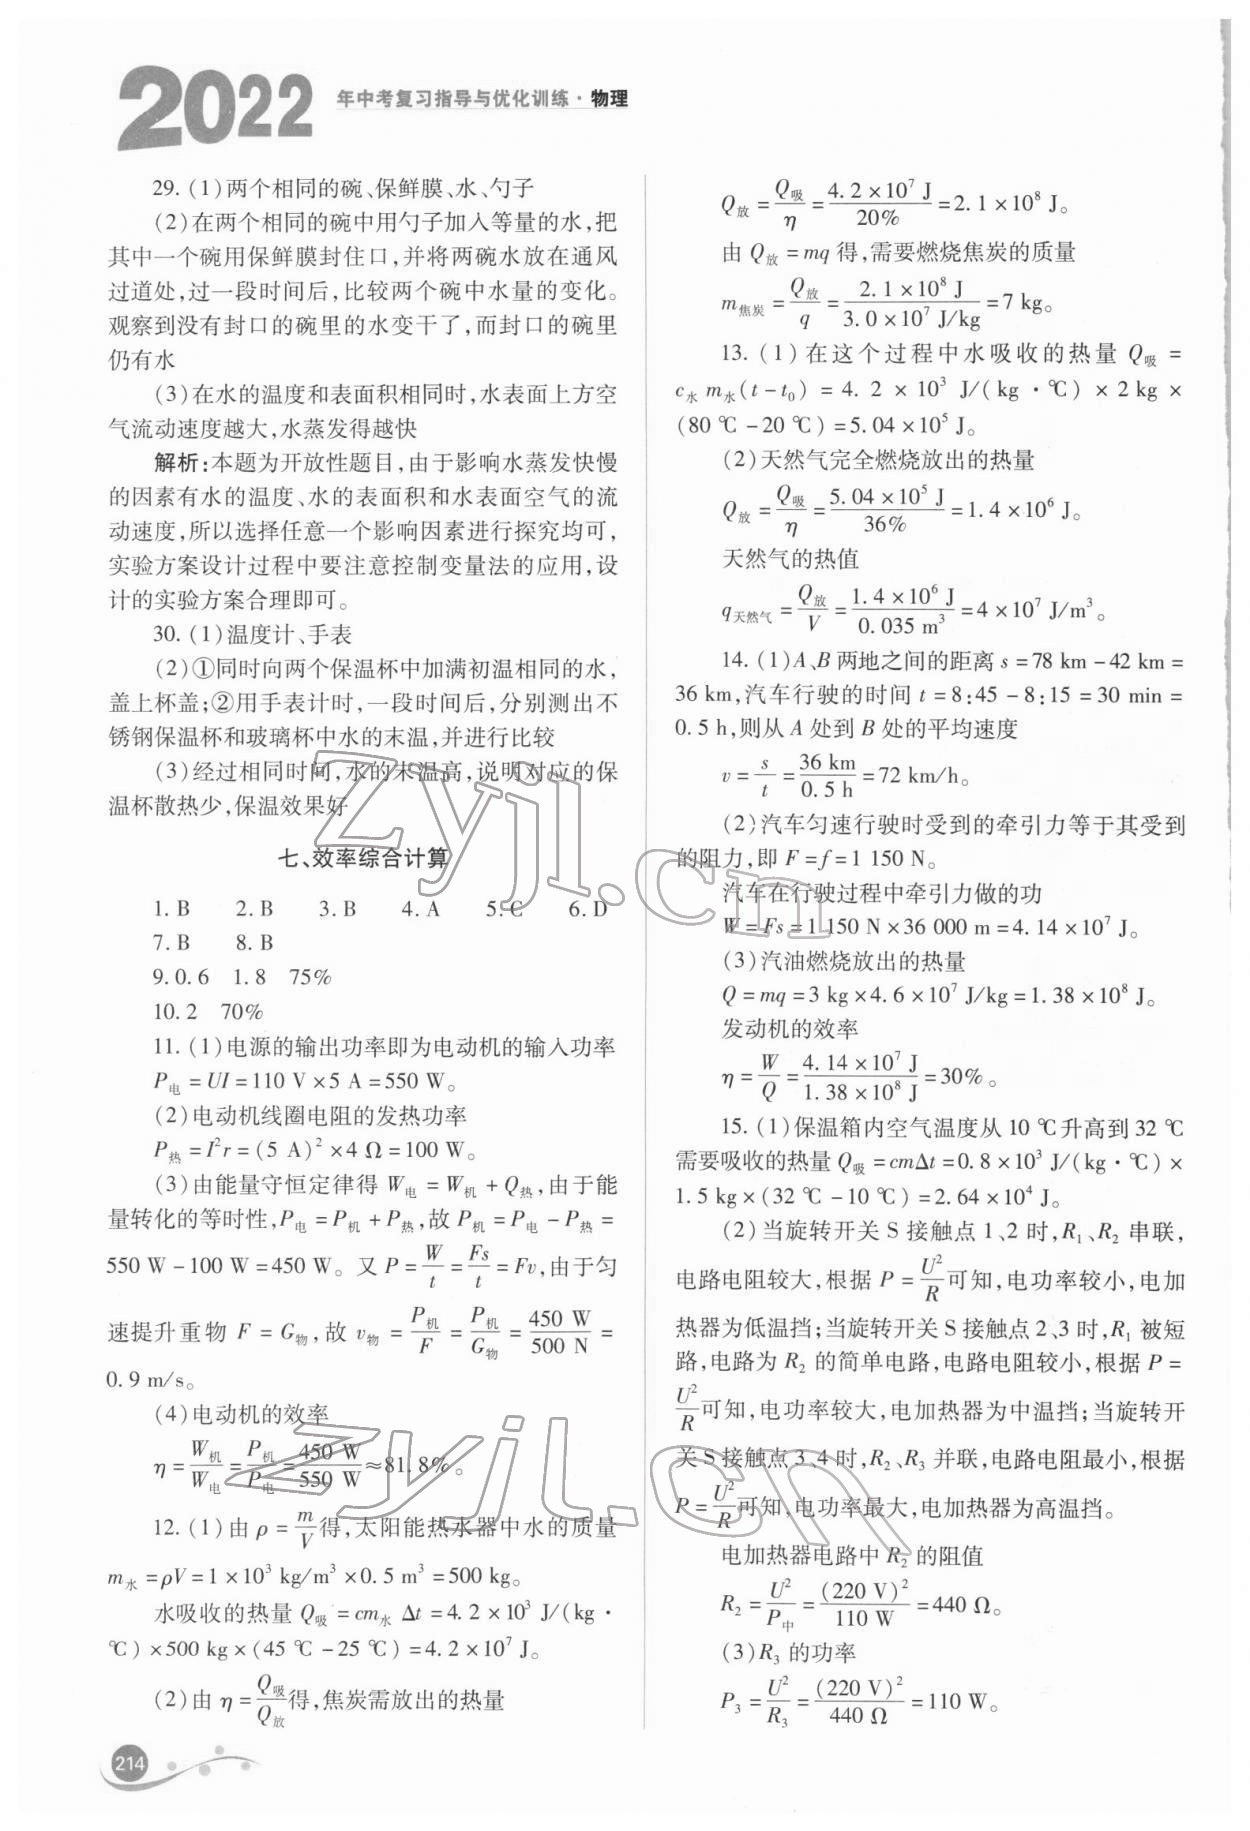 2022
年中考复习指导与优化训练·物理
29. (1)两个相同的碗、保鲜膜、水、勺子
(2)在两个相同的碗中用勺子加入等量的水,把
其中一个碗用保鲜膜封住口,并将两碗水放在通风
过道处,过一段时间后,比较两个碗中水量的变化。
观察到没有封口的碗里的水变干了,而封口的碗里
仍有水
(3)在水的温度和表面积相同时,水表面上方空
气流动速度越大,水蒸发得越快
解析:本题为开放性题目,由于影响水蒸发快慢
的因素有水的温度、水的表面积和水表面空气的流
动速度,所以选择任意一个影响因素进行探究均可,
实验方案设计过程中要注意控制变量法的应用,设
计的实验方案合理即可。
30. (1)温度计、手表
(2)①同时向两个保温杯中加满初温相同的水,
盖上杯盖;②用手表计时,一段时间后,分别测出不
锈钢保温杯和玻璃杯中水的末温,并进行比较
(3)经过相同时间,水的末温高,说明对应的保
温杯散热少,保温效果好
七、效率综合计算
1. B 2. B 3. B 4. A 5. C 6. D
7. B 8. B
9. 0.6 1.8 75%
10. 2 70%
11. (1)电源的输出功率即为电动机的输入功率
P电 = UI = 110 V × 5 A = 550 W。
(2)电动机线圈电阻的发热功率
P热 = I²r = (5 A)² × 4 Ω = 100 W。
(3)由能量守恒定律得 W电 = W机 + Q热,由于能
量转化的等时性,P电 = P机 + P热,故 P机 = P电 - P热 =
550 W - 100 W = 450 W。又 P = W/t = Fs/t = Fv,由于匀
速提升重物 F = G物,故 v物 = P机/F = P机/G物 = 450 W/500 N =
0.9 m/s。
(4)电动机的效率
η = W机/W电 = P机/P电 = 450 W/550 W ≈ 81.8%。
12. (1)由 ρ = m/V 得,太阳能热水器中水的质量
m水 = ρV = 1 × 10³ kg/m³ × 0.5 m³ = 500 kg。
水吸收的热量 Q吸 = cm水 Δt = 4.2 × 10³ J/(kg·
℃) × 500 kg × (45 ℃ - 25 ℃) = 4.2 × 10⁷ J。
(2)由 η = Q吸/Q放 得,焦炭需放出的热量
Q放 = Q吸/η = 4.2 × 10⁷ J/20% = 2.1 × 10⁸ J。
由 Q放 = mq 得,需要燃烧焦炭的质量
m焦炭 = Q放/q = 2.1 × 10⁸ J/3.0 × 10⁷ J/kg = 7 kg。
13. (1)在这个过程中水吸收的热量 Q吸 =
c水 m水(t - t₀) = 4.2 × 10³ J/(kg·℃) × 2 kg ×
(80 ℃ - 20 ℃) = 5.04 × 10⁵ J。
(2)天然气完全燃烧放出的热量
Q放 = Q吸/η = 5.04 × 10⁵ J/36% = 1.4 × 10⁶ J。
天然气的热值
q天然气 = Q放/V = 1.4 × 10⁶ J/0.035 m³ = 4 × 10⁷ J/m³。
14. (1)A、B 两地之间的距离 s = 78 km - 42 km =
36 km,汽车行驶的时间 t = 8:45 - 8:15 = 30 min =
0.5 h,则从 A 处到 B 处的平均速度
v = s/t = 36 km/0.5 h = 72 km/h。
(2)汽车匀速行驶时受到的牵引力等于其受到
的阻力,即 F = f = 1 150 N。
汽车在行驶过程中牵引力做的功
W = Fs = 1 150 N × 36 000 m = 4.14 × 10⁷ J。
(3)汽油燃烧放出的热量
Q = mq = 3 kg × 4.6 × 10⁷ J/kg = 1.38 × 10⁸ J。
发动机的效率
η = W/Q = 4.14 × 10⁷ J/1.38 × 10⁸ J = 30%。
15. (1)保温箱内空气温度从 10 ℃升高到 32 ℃
需要吸收的热量 Q吸 = cmΔt = 0.8 × 10³ J/(kg·℃) ×
1.5 kg × (32 ℃ - 10 ℃) = 2.64 × 10⁴ J。
(2)当旋转开关 S 接触点 1、2 时,R₁、R₂ 串联,
电路电阻较大,根据 P = U²/R 可知,电功率较小,电加
热器为低温挡;当旋转开关 S 接触点 2、3 时,R₁ 被短
路,电路为 R₂ 的简单电路,电路电阻较小,根据 P =
U²/R 可知,电功率较大,电加热器为中温挡;当旋转开
关 S 接触点 3、4 时,R₂、R₃ 并联,电路电阻最小,根据
P = U²/R 可知,电功率最大,电加热器为高温挡。
电加热器电路中 R₂ 的阻值
R₂ = U²/P中 = (220 V)²/110 W = 440 Ω。
(3)R₃ 的功率
P₃ = U²/R₃ = (220 V)²/440 Ω = 110 W。
214
zyjl.cn
zyjl.cn